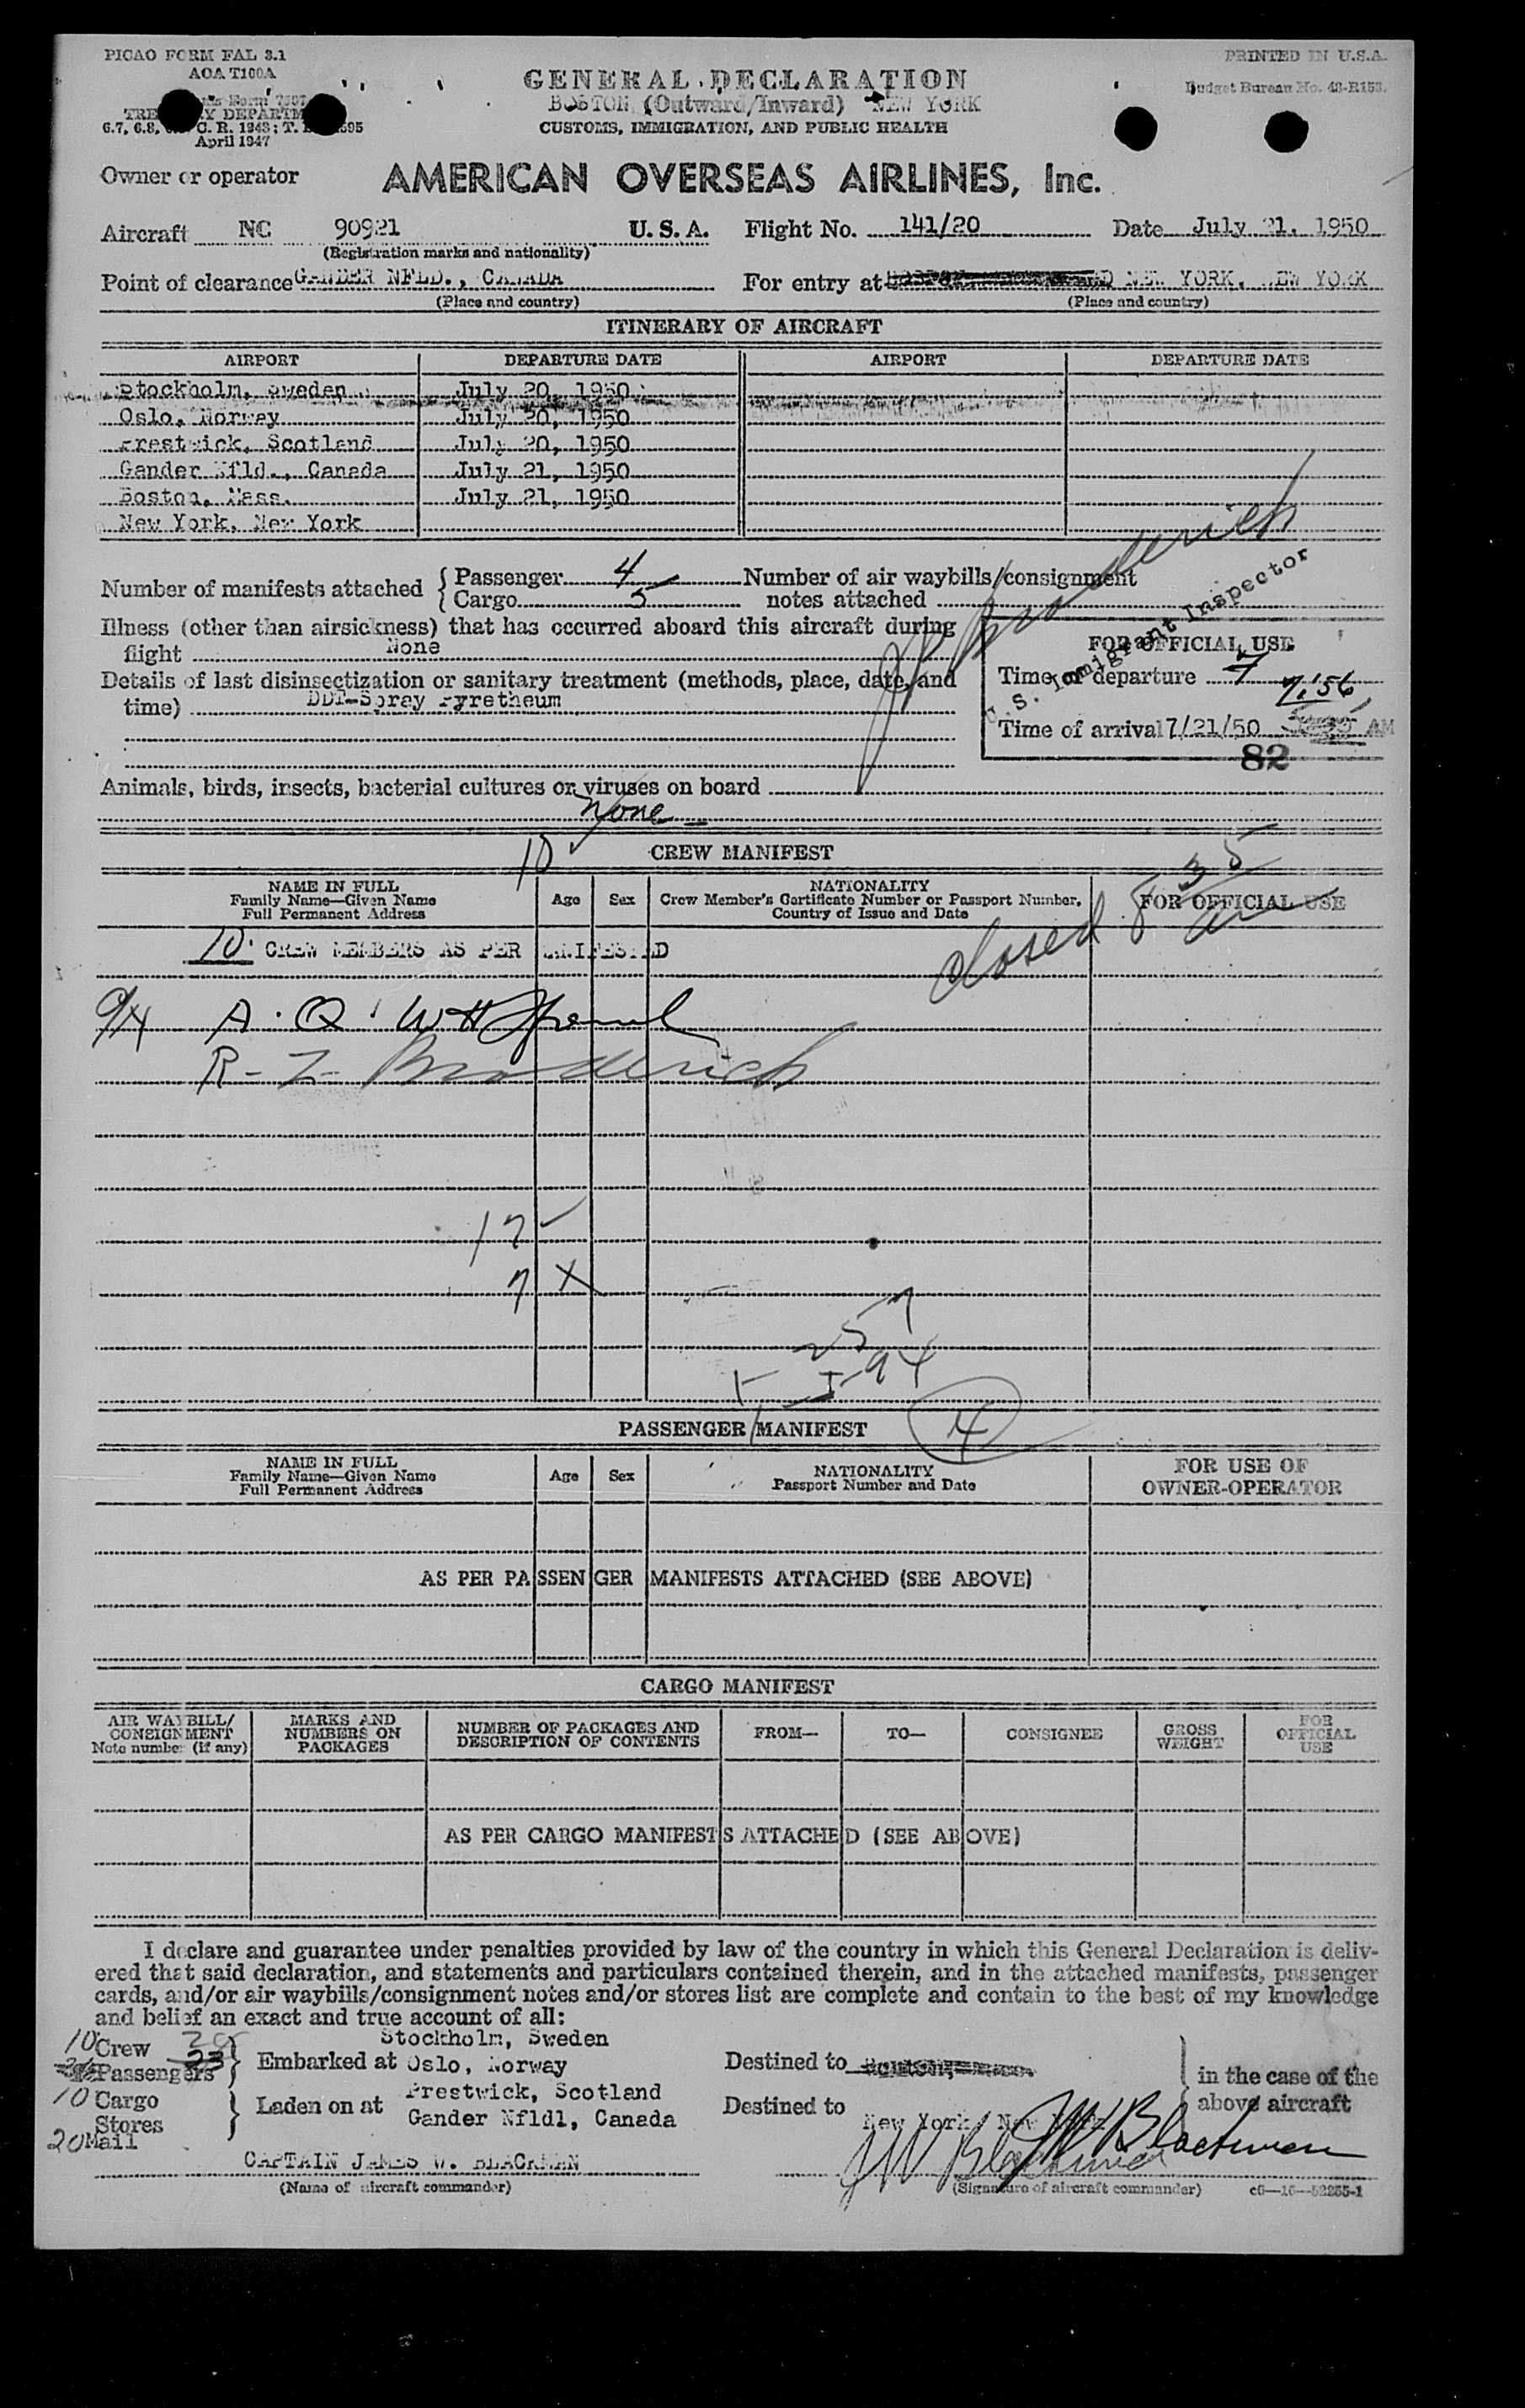 PICAO FORM FAL 3.1
AOA T100A
PRINTED IN U.S.A.
Budget Bureau No. 43-R153.
GENERAL DECLARATION
BOSTON (Outward/Inward) NEW YORK
CUSTOMS, IMMIGRATION, AND PUBLIC HEALTH
April 1947
Owner or operator AMERICAN OVERSEAS AIRLINES, Inc.
Aircraft NC 90921 U. S. A. Flight No. 141/20 Date July 21, 1950
(Registration marks and nationality)
Point of clearance GANDER NFLD., CANADA For entry at NEW YORK, NEW YORK
(Place and country) (Place and country)
ITINERARY OF AIRCRAFT
AIRPORT DEPARTURE DATE AIRPORT DEPARTURE DATE
Stockholm, Sweden July 20, 1950
Oslo, Norway July 20, 1950
Prestwick, Scotland July 20, 1950
Gander Nfld., Canada July 21, 1950
Boston, Mass. July 21, 1950
New York, New York
Number of manifests attached { Passenger 4 Number of air waybills/consignment
Cargo 5 notes attached
Illness (other than airsickness) that has occurred aboard this aircraft during
flight None
Details of last disinsectization or sanitary treatment (methods, place, date, and
time) DDT-Spray Pyretheum
Broderick
U.S. Immigrant Inspector
FOR OFFICIAL USE
Time of departure 7
7:56
Time of arrival 7/21/50 AM
82
Animals, birds, insects, bacterial cultures or viruses on board
None
10
CREW MANIFEST
NAME IN FULL
Family Name—Given Name
Full Permanent Address
Age Sex
NATIONALITY
Crew Member's Certificate Number or Passport Number,
Country of Issue and Date
FOR OFFICIAL USE
closed 8 35
10 CREW MEMBERS AS PER MANIFESTED
A. Q.
R. Z. Broderick
17
7 X
7
25
94
PASSENGER MANIFEST 4
NAME IN FULL
Family Name—Given Name
Full Permanent Address
Age Sex
NATIONALITY
Passport Number and Date
FOR USE OF
OWNER-OPERATOR
AS PER PASSENGER MANIFESTS ATTACHED (SEE ABOVE)
CARGO MANIFEST
AIR WAYBILL/
CONSIGNMENT
Note number (if any)
MARKS AND
NUMBERS ON
PACKAGES
NUMBER OF PACKAGES AND
DESCRIPTION OF CONTENTS
FROM— TO— CONSIGNEE
GROSS
WEIGHT
FOR
OFFICIAL
USE
AS PER CARGO MANIFESTS ATTACHED (SEE ABOVE)
I declare and guarantee under penalties provided by law of the country in which this General Declaration is deliv-
ered that said declaration, and statements and particulars contained therein, and in the attached manifests, passenger
cards, and/or air waybills/consignment notes and/or stores list are complete and contain to the best of my knowledge
and belief an exact and true account of all:
10 Crew
Passengers 33
10 Cargo
Stores
20 Mail
Embarked at
Laden on at
Stockholm, Sweden
Oslo, Norway
Prestwick, Scotland
Gander Nfldl, Canada
Destined to
Destined to New York, New
in the case of the
above aircraft
CAPTAIN JAMES W. BLACKMAN
JW Blackman
JW Blackman
(Name of aircraft commander) (Signature of aircraft commander) c6—16—52255-1